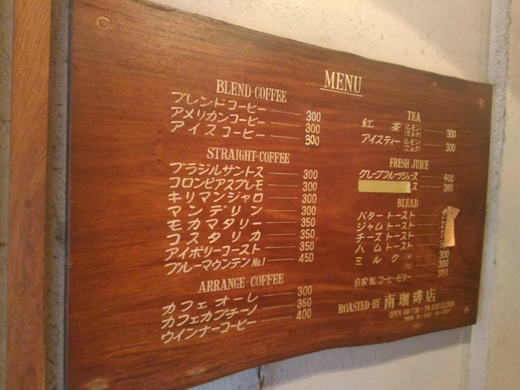 MENU
BLEND-COFFEE
ブレンドコーヒー 300
アメリカンコーヒー 300
アイスコーヒー 300
STRAIGHT-COFFEE
ブラジルサントス 300
コロンビアスプレモ 300
キリマンジャロ 300
マンデリン 300
モカマタリー 350
コスタリカ 350
アイボリーコースト 350
ブルーマウンテンNo.1 450
ARRANGE-COFFEE
カフェオーレ 300
カフェカプチーノ 350
ウインナーコーヒー 400
TEA
紅茶(レモン ミルク) 300
アイスティー(レモン ミルク) 300
FRESH JUICE
グレープフルーツジュース 400
ス 380
BLEAD
バタートースト
ジャムトースト
チーズトースト
ハムトースト
ミルク
自家製コーヒーゼリー 350
ROASTED-BY 南珈琲店